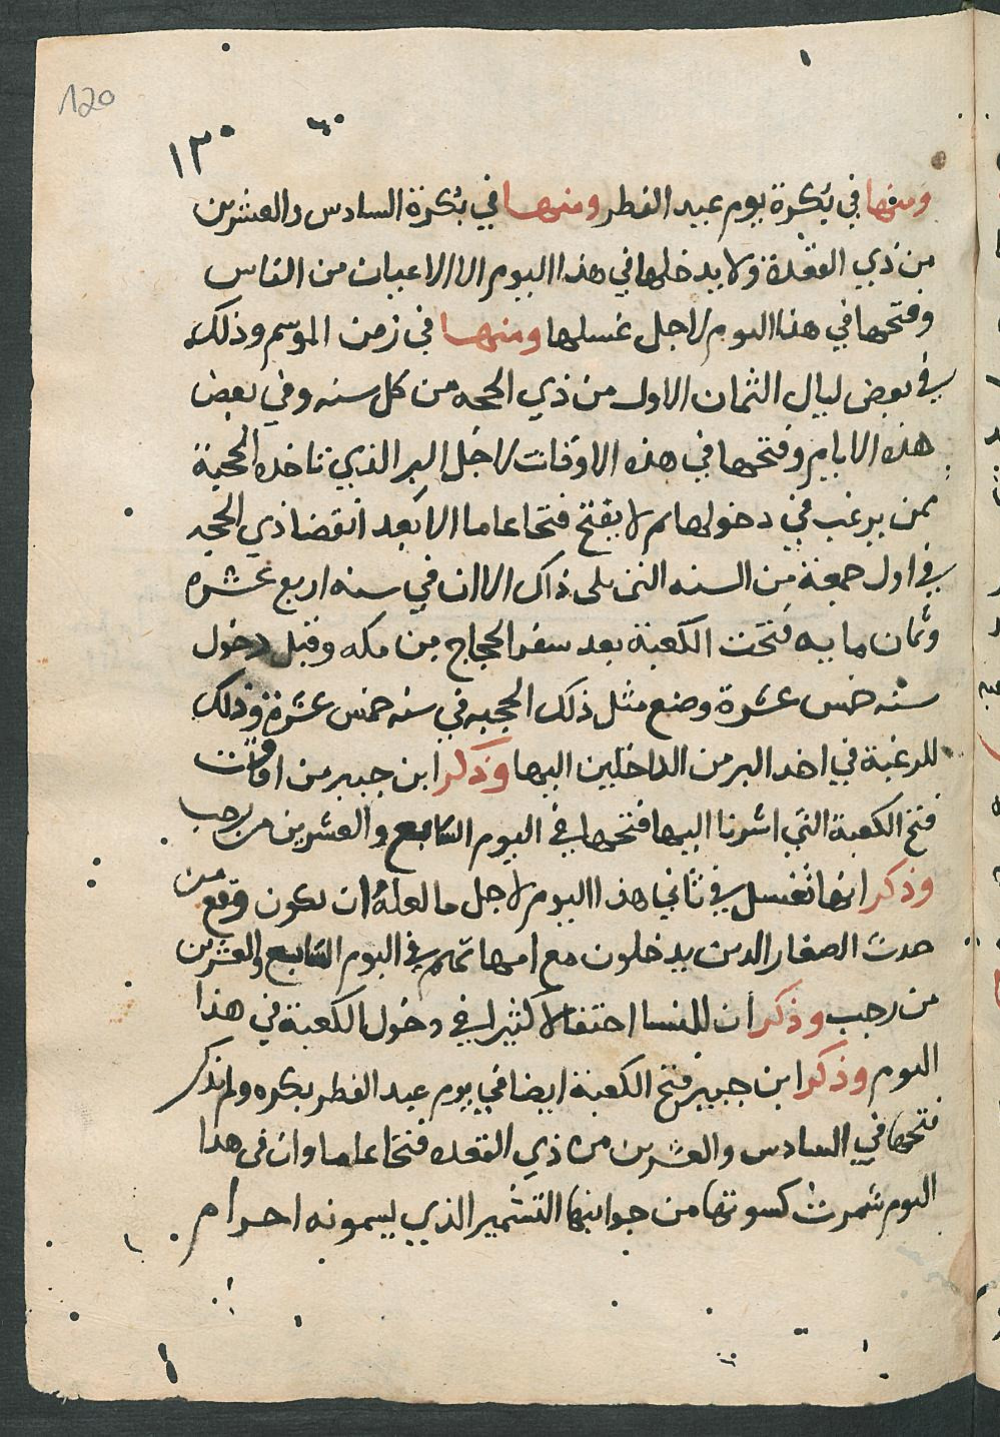 120
١٣٠
ومنها في بُكرة يوم عيد الفطر ومنها في بُكرة السادس والعشرين
من ذي القعْدة ولا يدخلها في هذا اليوم الا الاعيان من الناس
وفتحها في هذا اليوم لاجل غسلها ومنها في زمن الموسم وذلك
في بعض ليال الثمان الاول من ذي الحجه من كل سنه وفي بعض
هذه الايام وفتحها في هذه الاوقات لاجل البر الذي تاخده الحجبة
ممن يرغب في دخولها م لا يفتح فتحا عاما الا بَعد انقضا ذي الحجه
في اول جمعة من السنه التى تلى ذاك الا ان في سنه اربع عشره
وثمان مايه فتحت الكعبة بعد سفر الحجاج من مكه وقبل دخول
سنه خمس عشرة وصنع مثل ذلك الحجبه في سنه خمس عشرة وذلك
للرغبة في اخد البر من الداخلين اليها وذكر ابن جبير من اوقات
فتح الكعبة التي اشرنا اليها فتحها في اليوم التاسع والعشرين من رجب
وذكر انها تغسل في ثاني هذا اليوم لاجل ما لعلهُ ان يكون وقع من
حدث الصغار الدين يدخلون مع امهاتهم في اليوم التاسع والعشرين
من رجب وذكر ان للنسا احتفالا كثيرا في دخول الكعبة في هذا
اليوم وذكر ابن جبير فتح الكعبة ايضا في يوم عيد الفطر بكره ولم يذكر
فتحها في السادس والعشرين من ذي القعده فتحا عاما وان فى هدا
اليوم شمرت كسوتها من جوانبها التشمير الذي يسمونه احرام